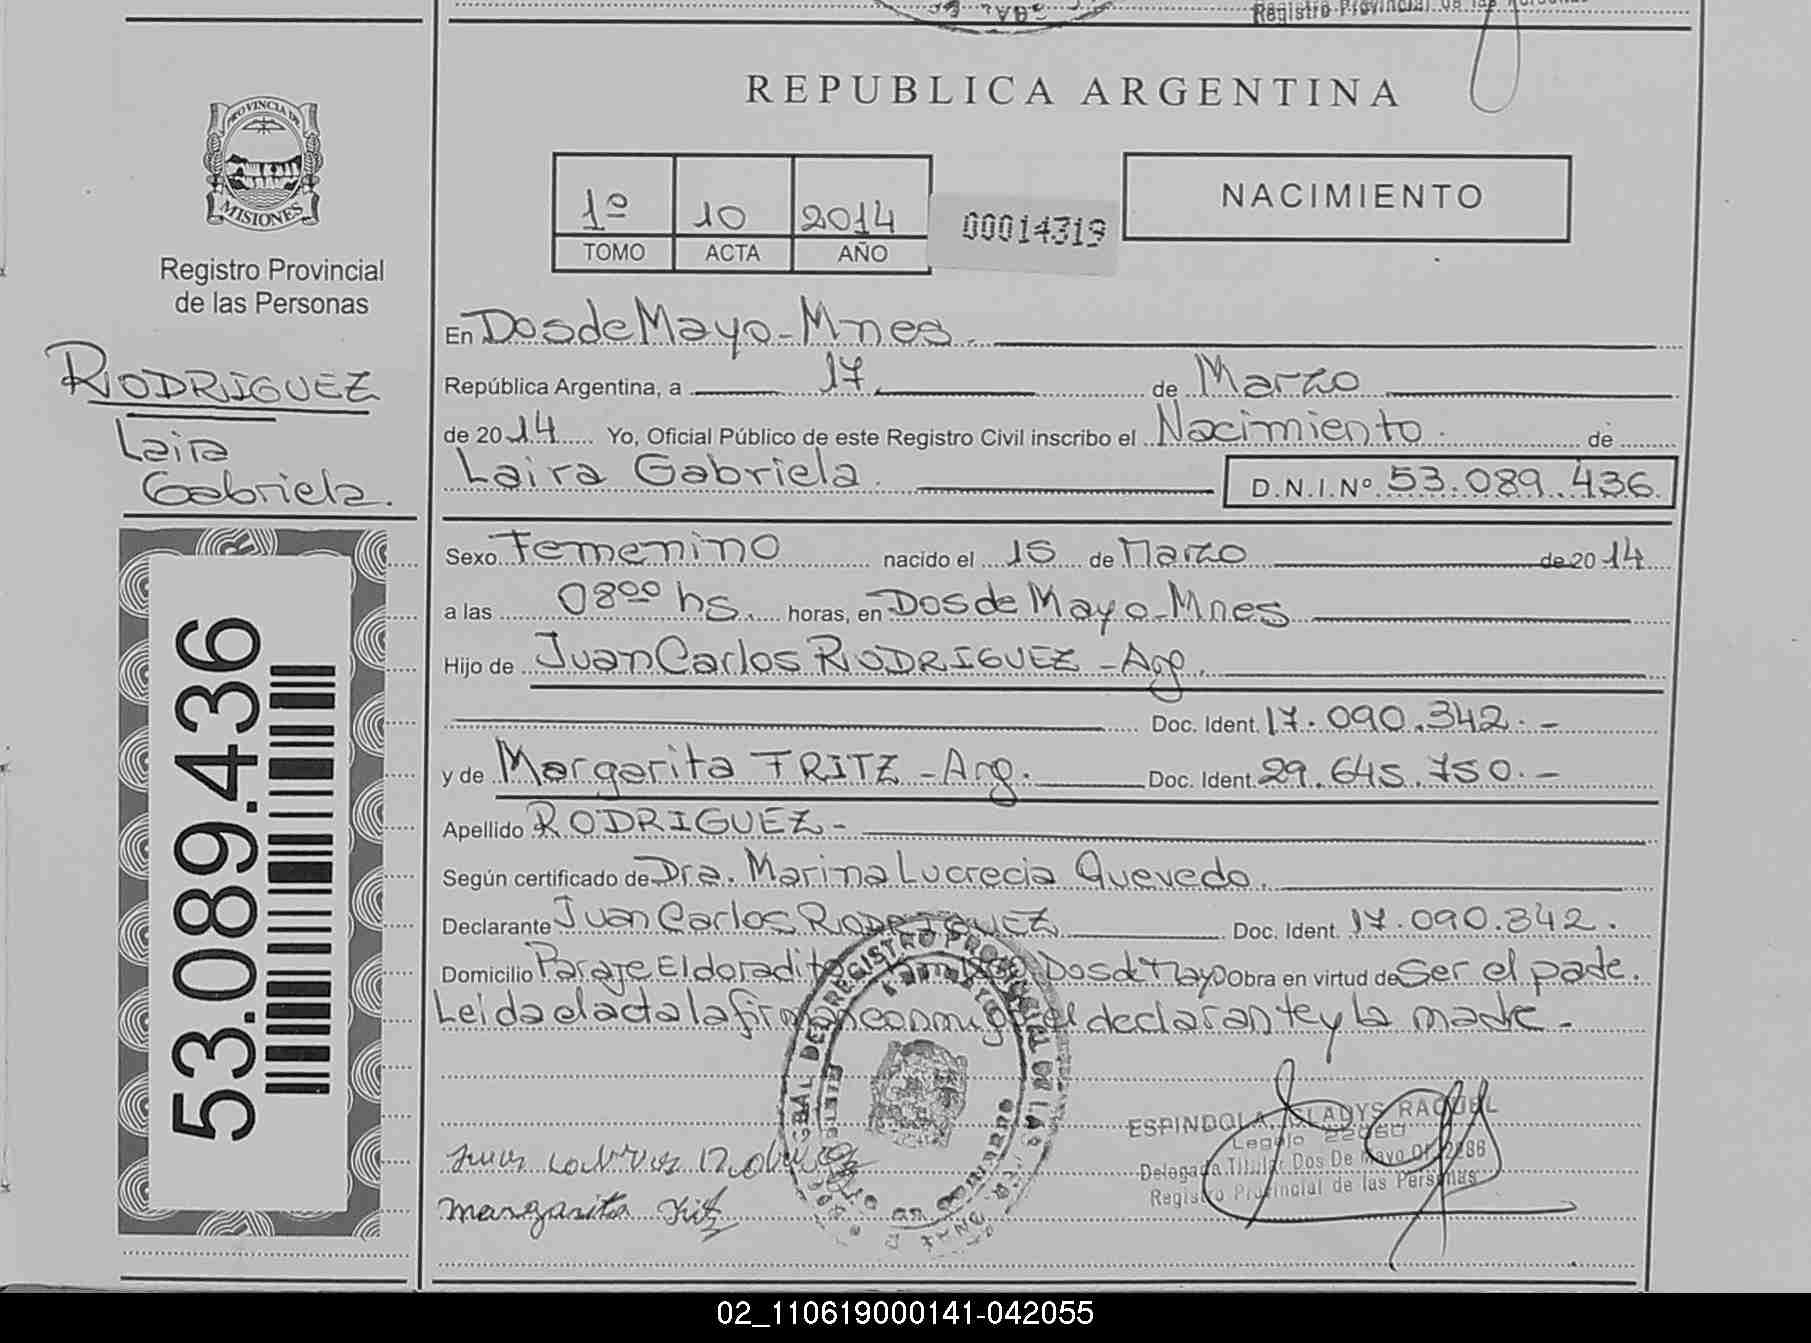 Registro Provincial de las Personas
REPUBLICA ARGENTINA
PROVINCIA DE
MISIONES
Registro Provincial
de las Personas
1º 10 2014
TOMO ACTA AÑO
00014319
NACIMIENTO
RODRIGUEZ
Laira
Gabriela.
53.089.436
En Dos de Mayo - Mnes.
República Argentina, a 17 de Marzo
de 2014 Yo, Oficial Público de este Registro Civil inscribo el Nacimiento de
Laira Gabriela D.N.I.Nº 53.089.436
Sexo Femenino nacido el 15 de Marzo de 2014
a las 08⁰⁰ hs. horas, en Dos de Mayo - Mnes
Hijo de Juan Carlos RODRIGUEZ - Arg.
Doc. Ident. 17.090.342.-
y de Margarita FRITZ - Arg. Doc. Ident. 29.645.750.-
Apellido RODRIGUEZ -
Según certificado de Dra. Marina Lucrecia Quevedo.
Declarante Juan Carlos RODRIGUEZ Doc. Ident. 17.090.342.
Domicilio Paraje El doradito Dos de Mayo Obra en virtud de Ser el padre.
Leida el acta la firman conmigo el declarante y la madre.-
REGISTRO PROVINCIAL DE LAS
ESPINDOLA, GLADYS RAQUEL
Legajo
Delegada Titular Dos De Mayo Of. 2286
Registro Provincial de las Personas
Juan Carlos
margarita Fritz
02_110619000141-042055